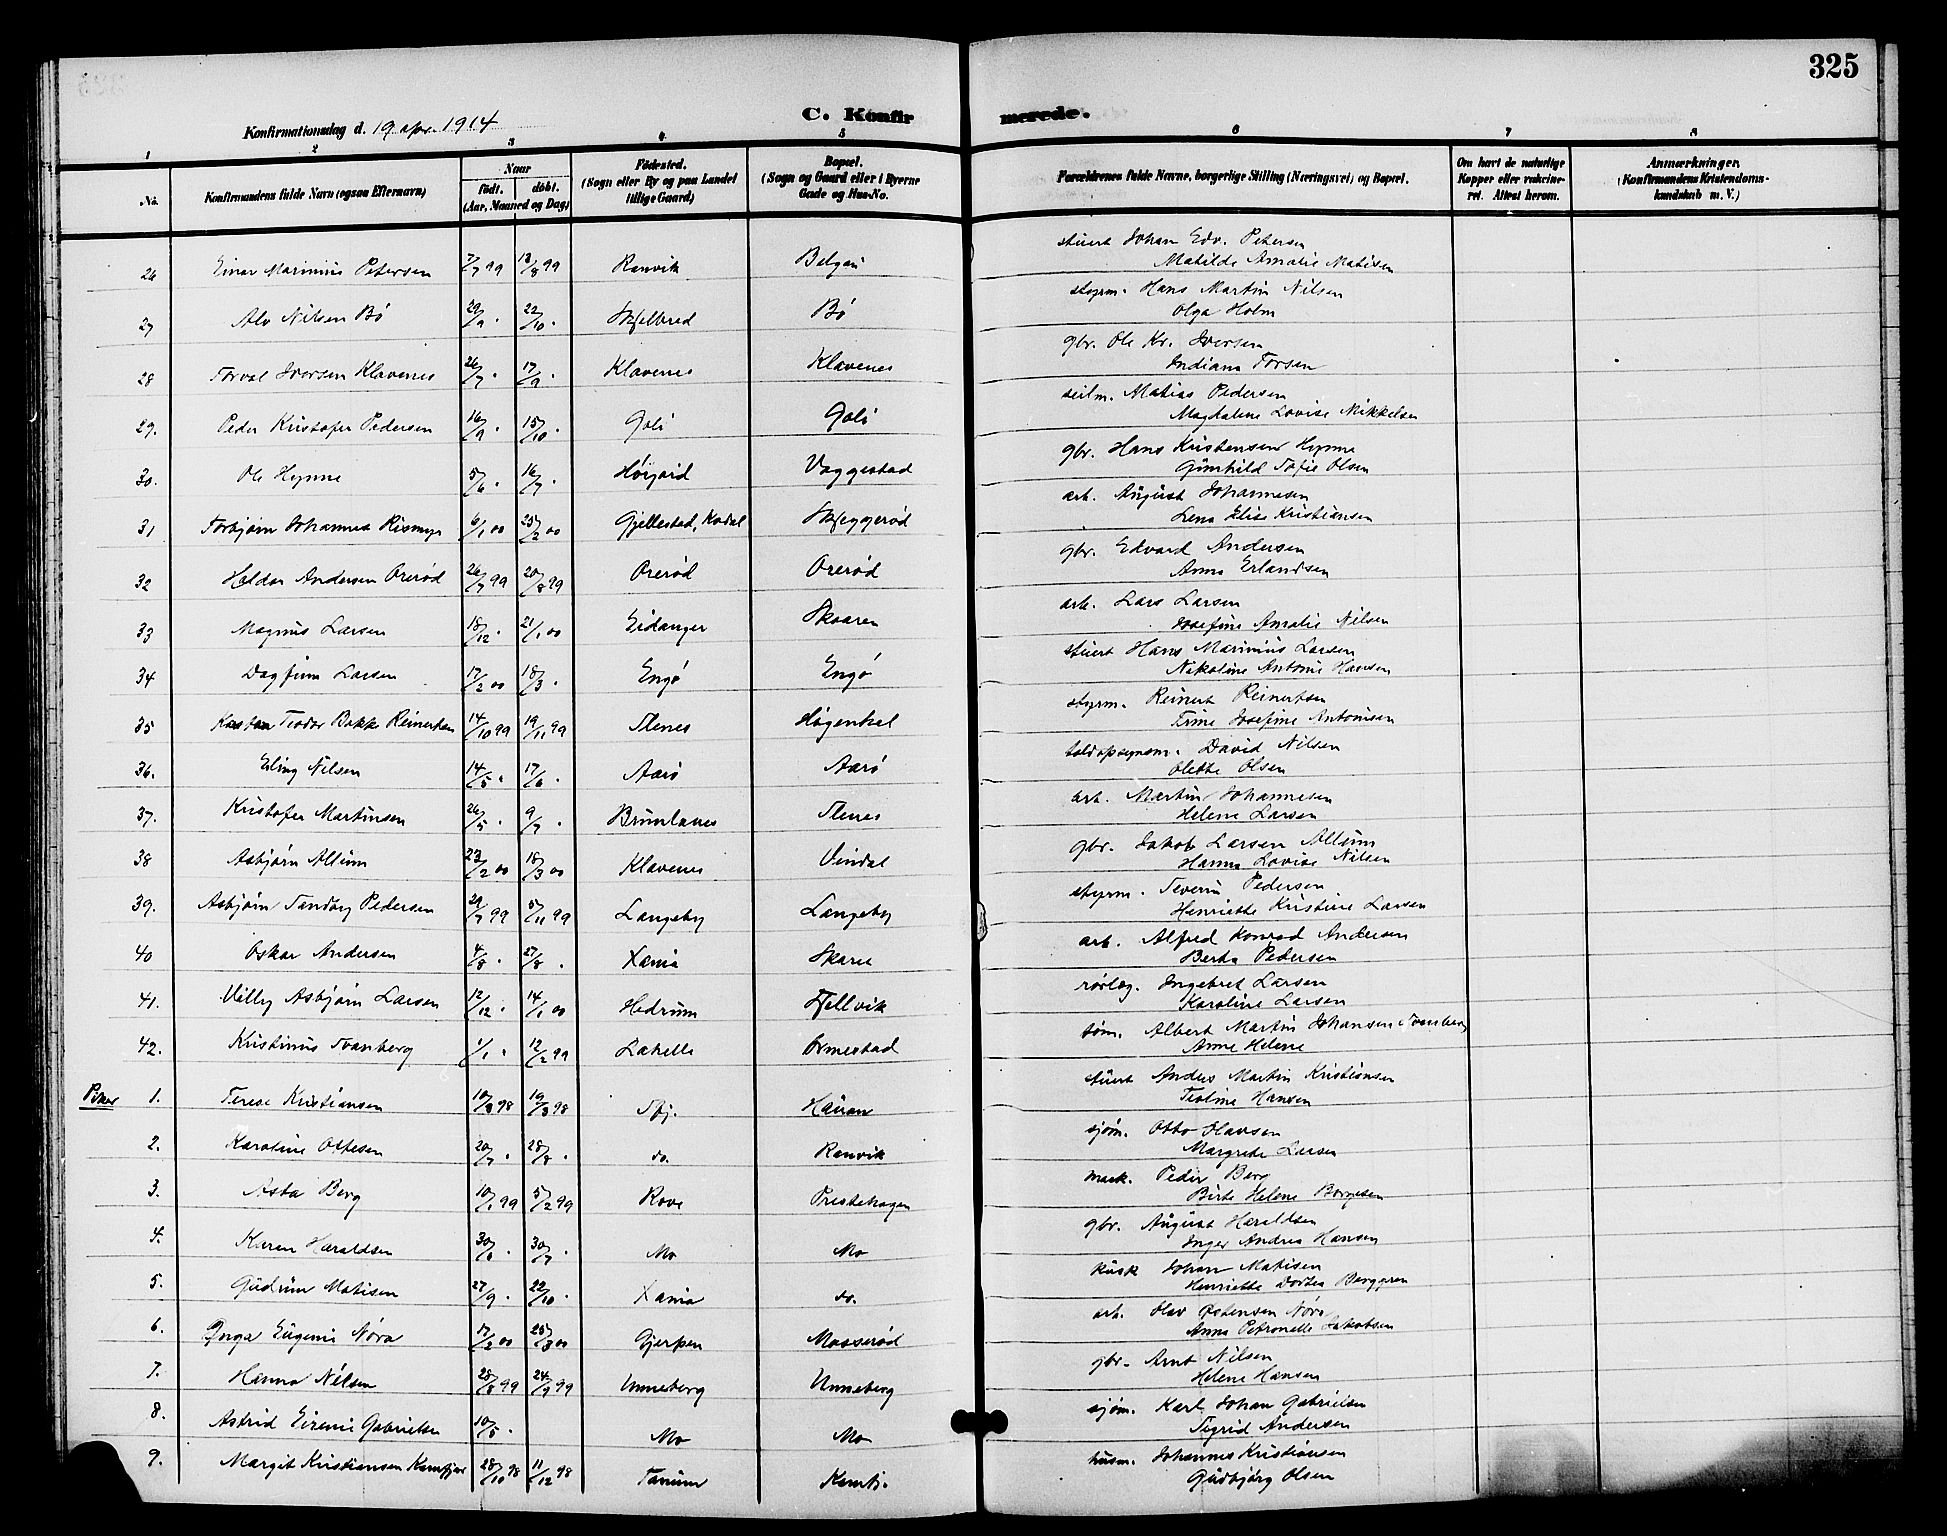 325
C. Konfirmerede.
Konfirmationsdag d. 19 apr. 1914
1 2 3 4 5 6 7 8
No. Konfirmandens fulde Navn (ogsaa Efternavn) Naar født. døbt. (Aar, Maaned og Dag) Fødested. (Sogn eller By og paa Landet tillige Gaard) Bopæl. (Sogn og Gaard eller i Byerne Gade og Hus-No. Forældrenes fulde Navne, borgerlige Stilling (Næringsvei) og Bopæl. Om havt de naturlige Kopper eller vakcineret. Attest herom. Anmærkninger. (Konfirmandens Kristendomskundskab m. V.)
26 Einar Marinius Petersen 7/7 99 13/8 99 Ranvik stuert Johan Edv. Petersen
Matilde Amalie Matisen
27 Alv Nilsen Bø 29/9 . 22/10 . Skjelbred Bø styrm. Hans Martin Nilsen
Olga Holm
28 Torval Iversen Klavenes 26/7 . 17/9 . Klavenes Klavenes gbr. Ole Kr. Iversen
Indiana Torsen
29. Peder Kristofer Pedersen 16/9 . 15/10 . Goli Goli seilm. Matias Pedersen
Magdalene Lovise Mikkelsen
30. Ole Hynne 5/6 . 16/7 . Høijord Vaggestad gbr. Hans Kristensen Hynne
Gunhild Sofie Olsen
31 Torbjørn Johannes Rismyr 6/1 00 25/2 00 Gjellestad, Kodal Skjeggerød arb. August Johannesen
Lena Elise Kristiansen
32 Haldor Andersen Orerød 26/7 99 20/8 99 Orerød Orerød gbr. Edvard Andersen
Anna Erlandsen
33 Magnus Larsen 18/12 . 21/1 00 Eidanger Skaaren arb. Lars Larsen
Josefine Amalie Nilsen
34 Dagfinn Larsen 17/2 00 18/3 . Engø Engø stuert Hans Marinius Larsen
Nikoline Antonie Hansen
35 Teodor Bakke Reinertsen 14/10 99 19/11 99 Stenes Høgenhal styrm. Reinert Reinertsen
Trine Josefine Antonisen
36. Erling Nilsen 14/5 . 17/6 . Aarø Aarø toldopsynsm. David Nilsen
Olette Olsen
37. Kristofer Martinsen 26/5 . 9/7 . Brunlanes Stenes arb. Martin Johannesen
Helene Larsen
38 Asbjørn Allum 23/2 00 18/3 00 Klavenes Vindal gbr. Jakob Larsen Allum
Hanna Lovise Nilsen
39. Asbjørn Sandøy Pedersen 29/7 99 5/11 99 Langeby Langeby styrm. Severin Pedersen
Henriette Kristine Larsen
40 Oskar Andersen 4/8 . 27/8 . Xania Skaree arb. Alfred Konrad Andersen
Berta Pedersen
41. Villy Asbjørn Larsen 12/12 . 14/1 00 Hedrum Fjellvik rørlæg. Ingebret Larsen
Karoline Larsen
42. Kristinus Svanberg 1/1 . 12/2 99 Lahelle Ormestad tøm. Albert Martin Johansen Svanberg
Anne Helene
Piker 1. Terese Kristiansen 10/3 98 19/3 98 Sfj. Hauan stuert Anders Martin Kristiansen
Teoline Hansen
2. Karoline Ottesen 20/7 . 28/8 . do. Ranvik sjøm. Otto Olavsen
Margrete Larsen
3. Asta Berg 10/1 99 5/2 99 Rove Prestehagen mask. Peder Berg
Birte Helene Borgesen
4. Karen Haraldsen 30/6 . 30/7 . Mo Mo gbr. August Haraldsen
Inger Andrea Hansen
5. Gudrun Matisen 27/9 . 22/10 . Xania do. kusk Johan Matisen
Henriette Dortea Berggren
6. Inga Eugenie Nøra 17/2 00 25/3 00 Gjerpen Mosserød arb. Olav Ostensen Nøra
Anna Petronelle Jakobsen
7. Hanna Nilsen 28/8 99 24/9 99 Unneberg Unneberg gbr. Arnt Nilsen
Helene Hansen
8. Astrid Eirenie Gabrielsen 10/5 . Mo Mo sjøm. Karl Johan Gabrielsen
Sigrid Andersen
9. Margit Kristiansen Kamfjor 28/10 98 11/12 98 Tanum Kamfj. husm. Johannes Kristiansen
Gudbjørg Olsen